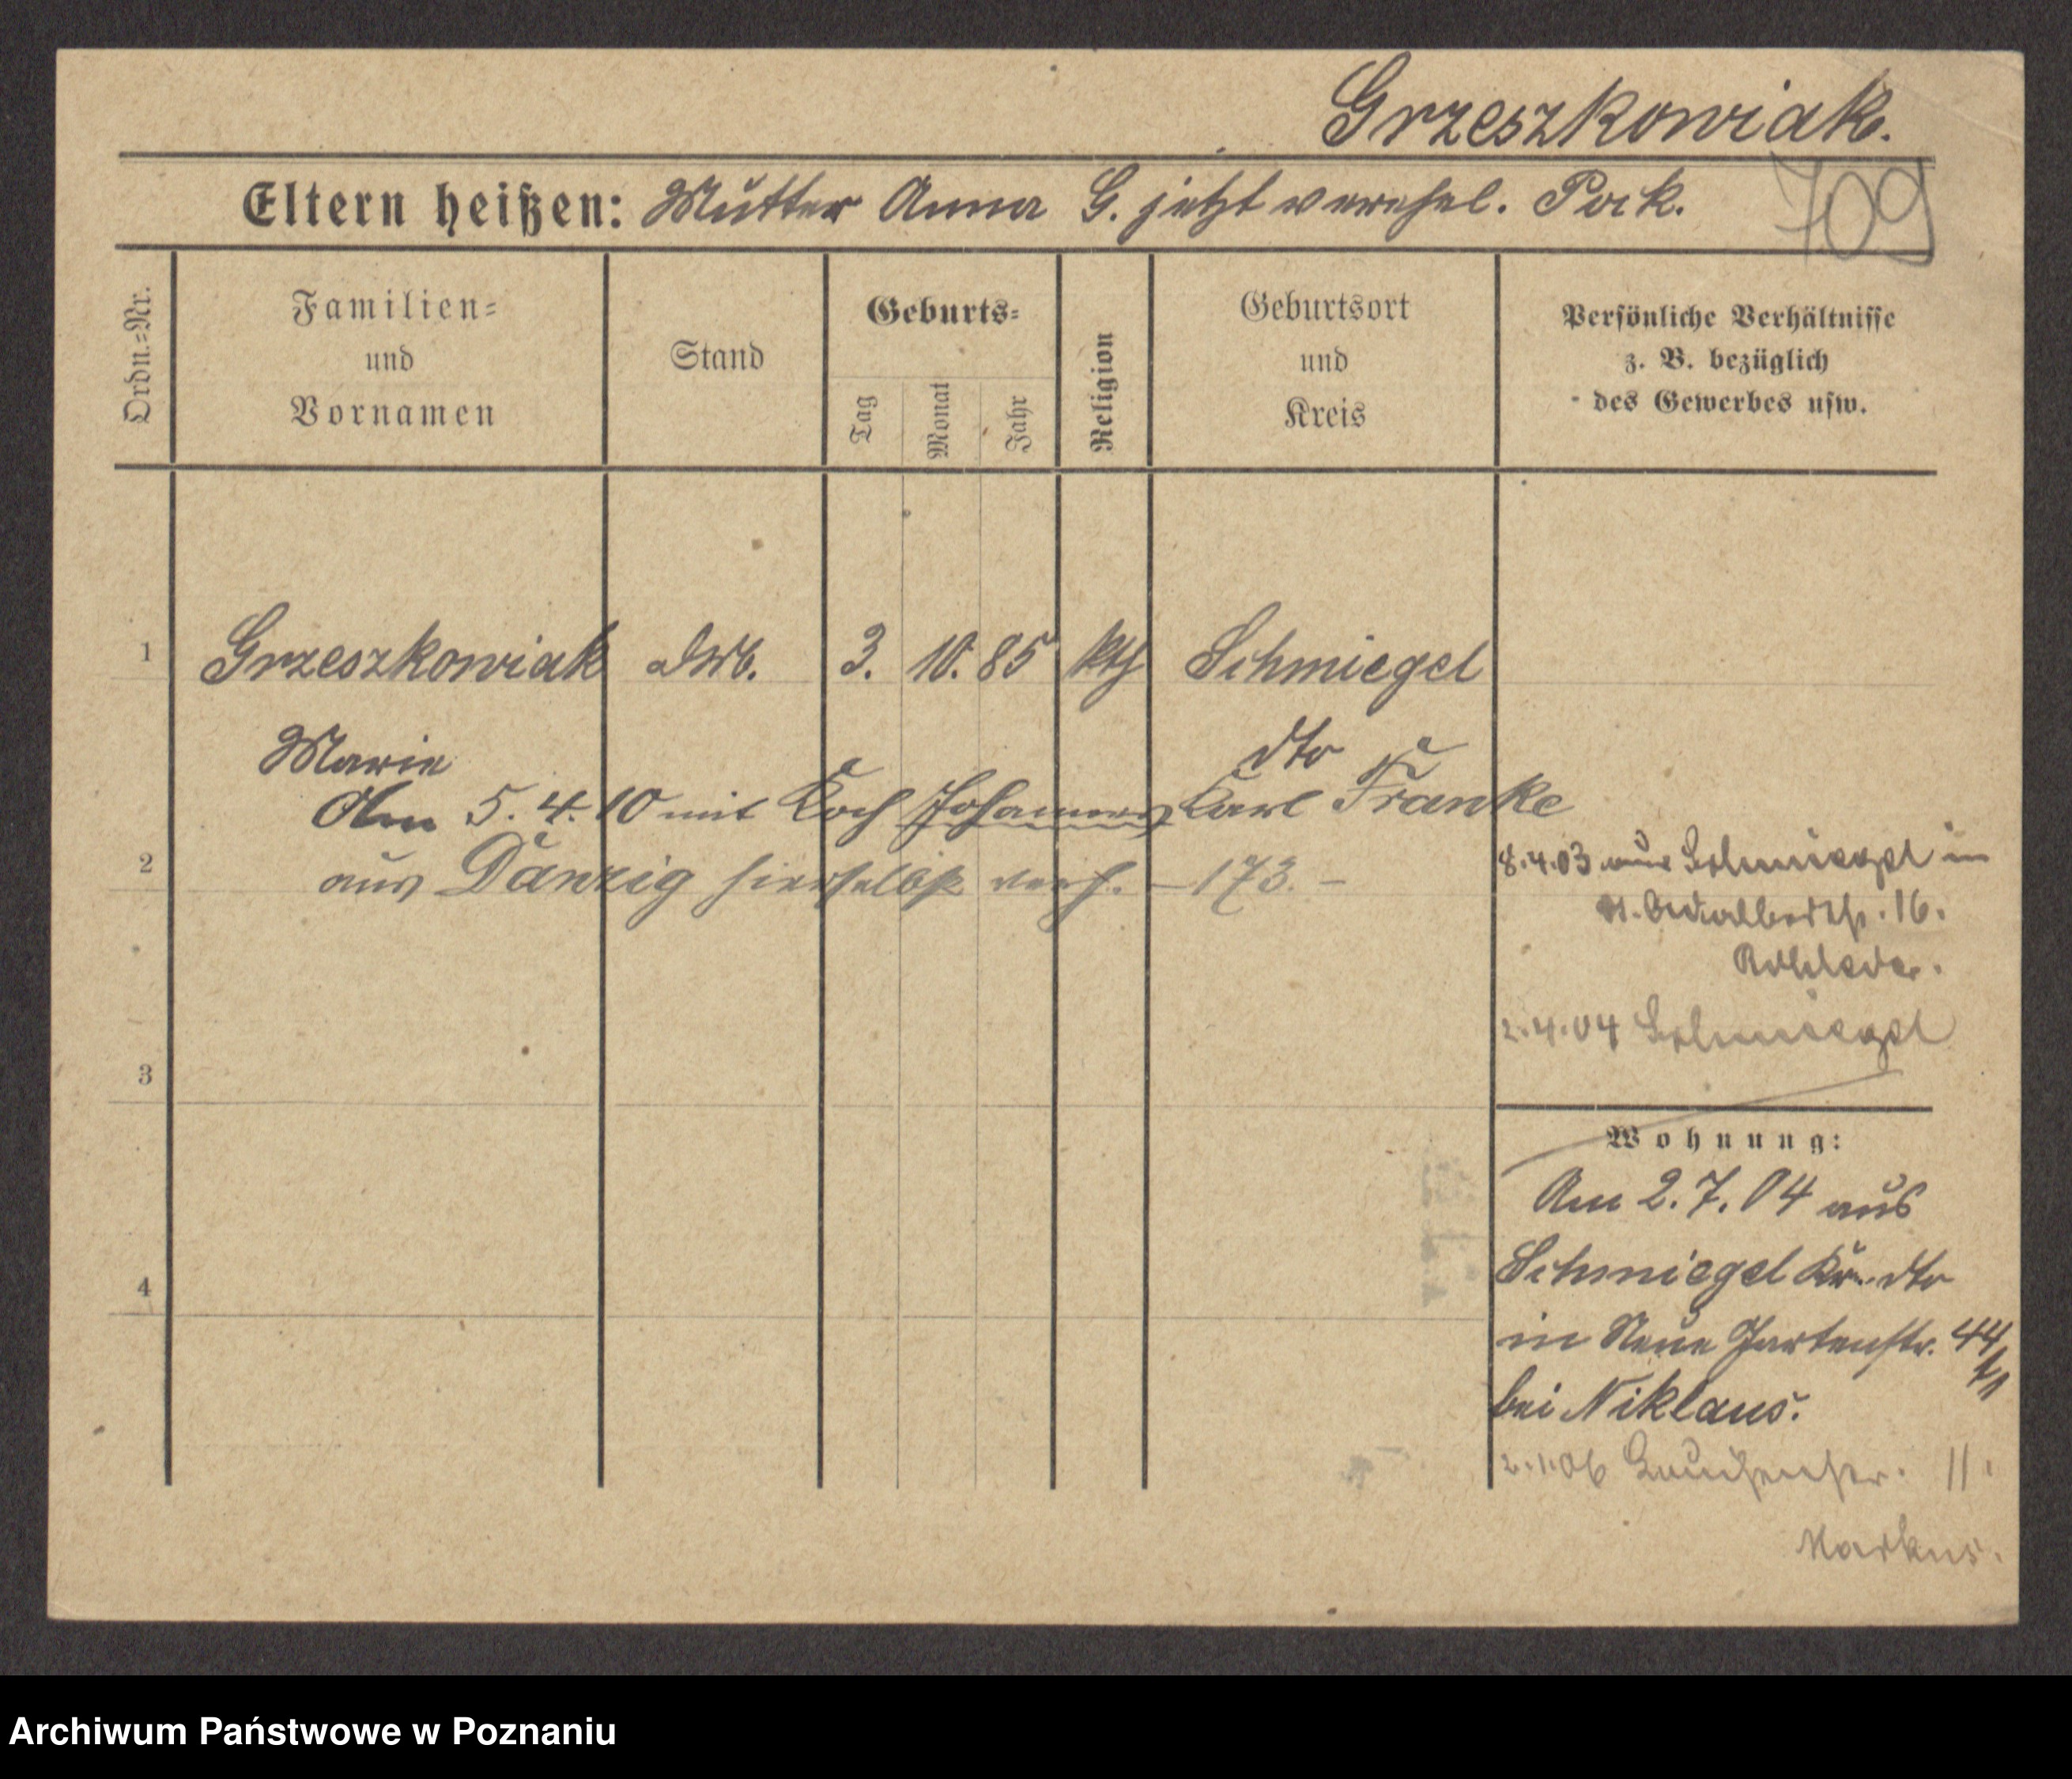 Grzeszkowiak.
Eltern heißen: Mutter Anna G. jetzt verehel. Pock.
709
Ordn.=Nr.
Familien=
und
Vornamen
Stand
Geburts=
Tag
Monat
Jahr
Religion
Geburtsort
und
Kreis
Persönliche Verhältnisse
z. B. bezüglich
des Gewerbes usw.
1 Grzeszkowiak 3. 10. 85 kth Schmiegel
Marie dto
Am 5. 4. 10 mit Koch Johannes Karl Franke
2
aus Danzig hierselbst verh. – 173. –
8.4.03 aus Schmiegel in
St. Adalbertstr. 16.
2.4.04 Schmiegel
3
Wohnung:
Am 2.7.04 aus
Schmiegel Kr. dto
4
in Neue Gartenstr. 44
bei Niklaus.
2.1.06 11.
Markus.
Archiwum Państwowe w Poznaniu